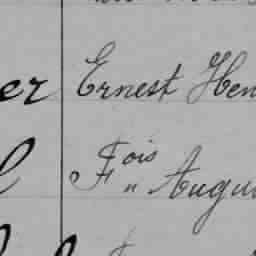 er Ernest Hen
l Fois „ Augu